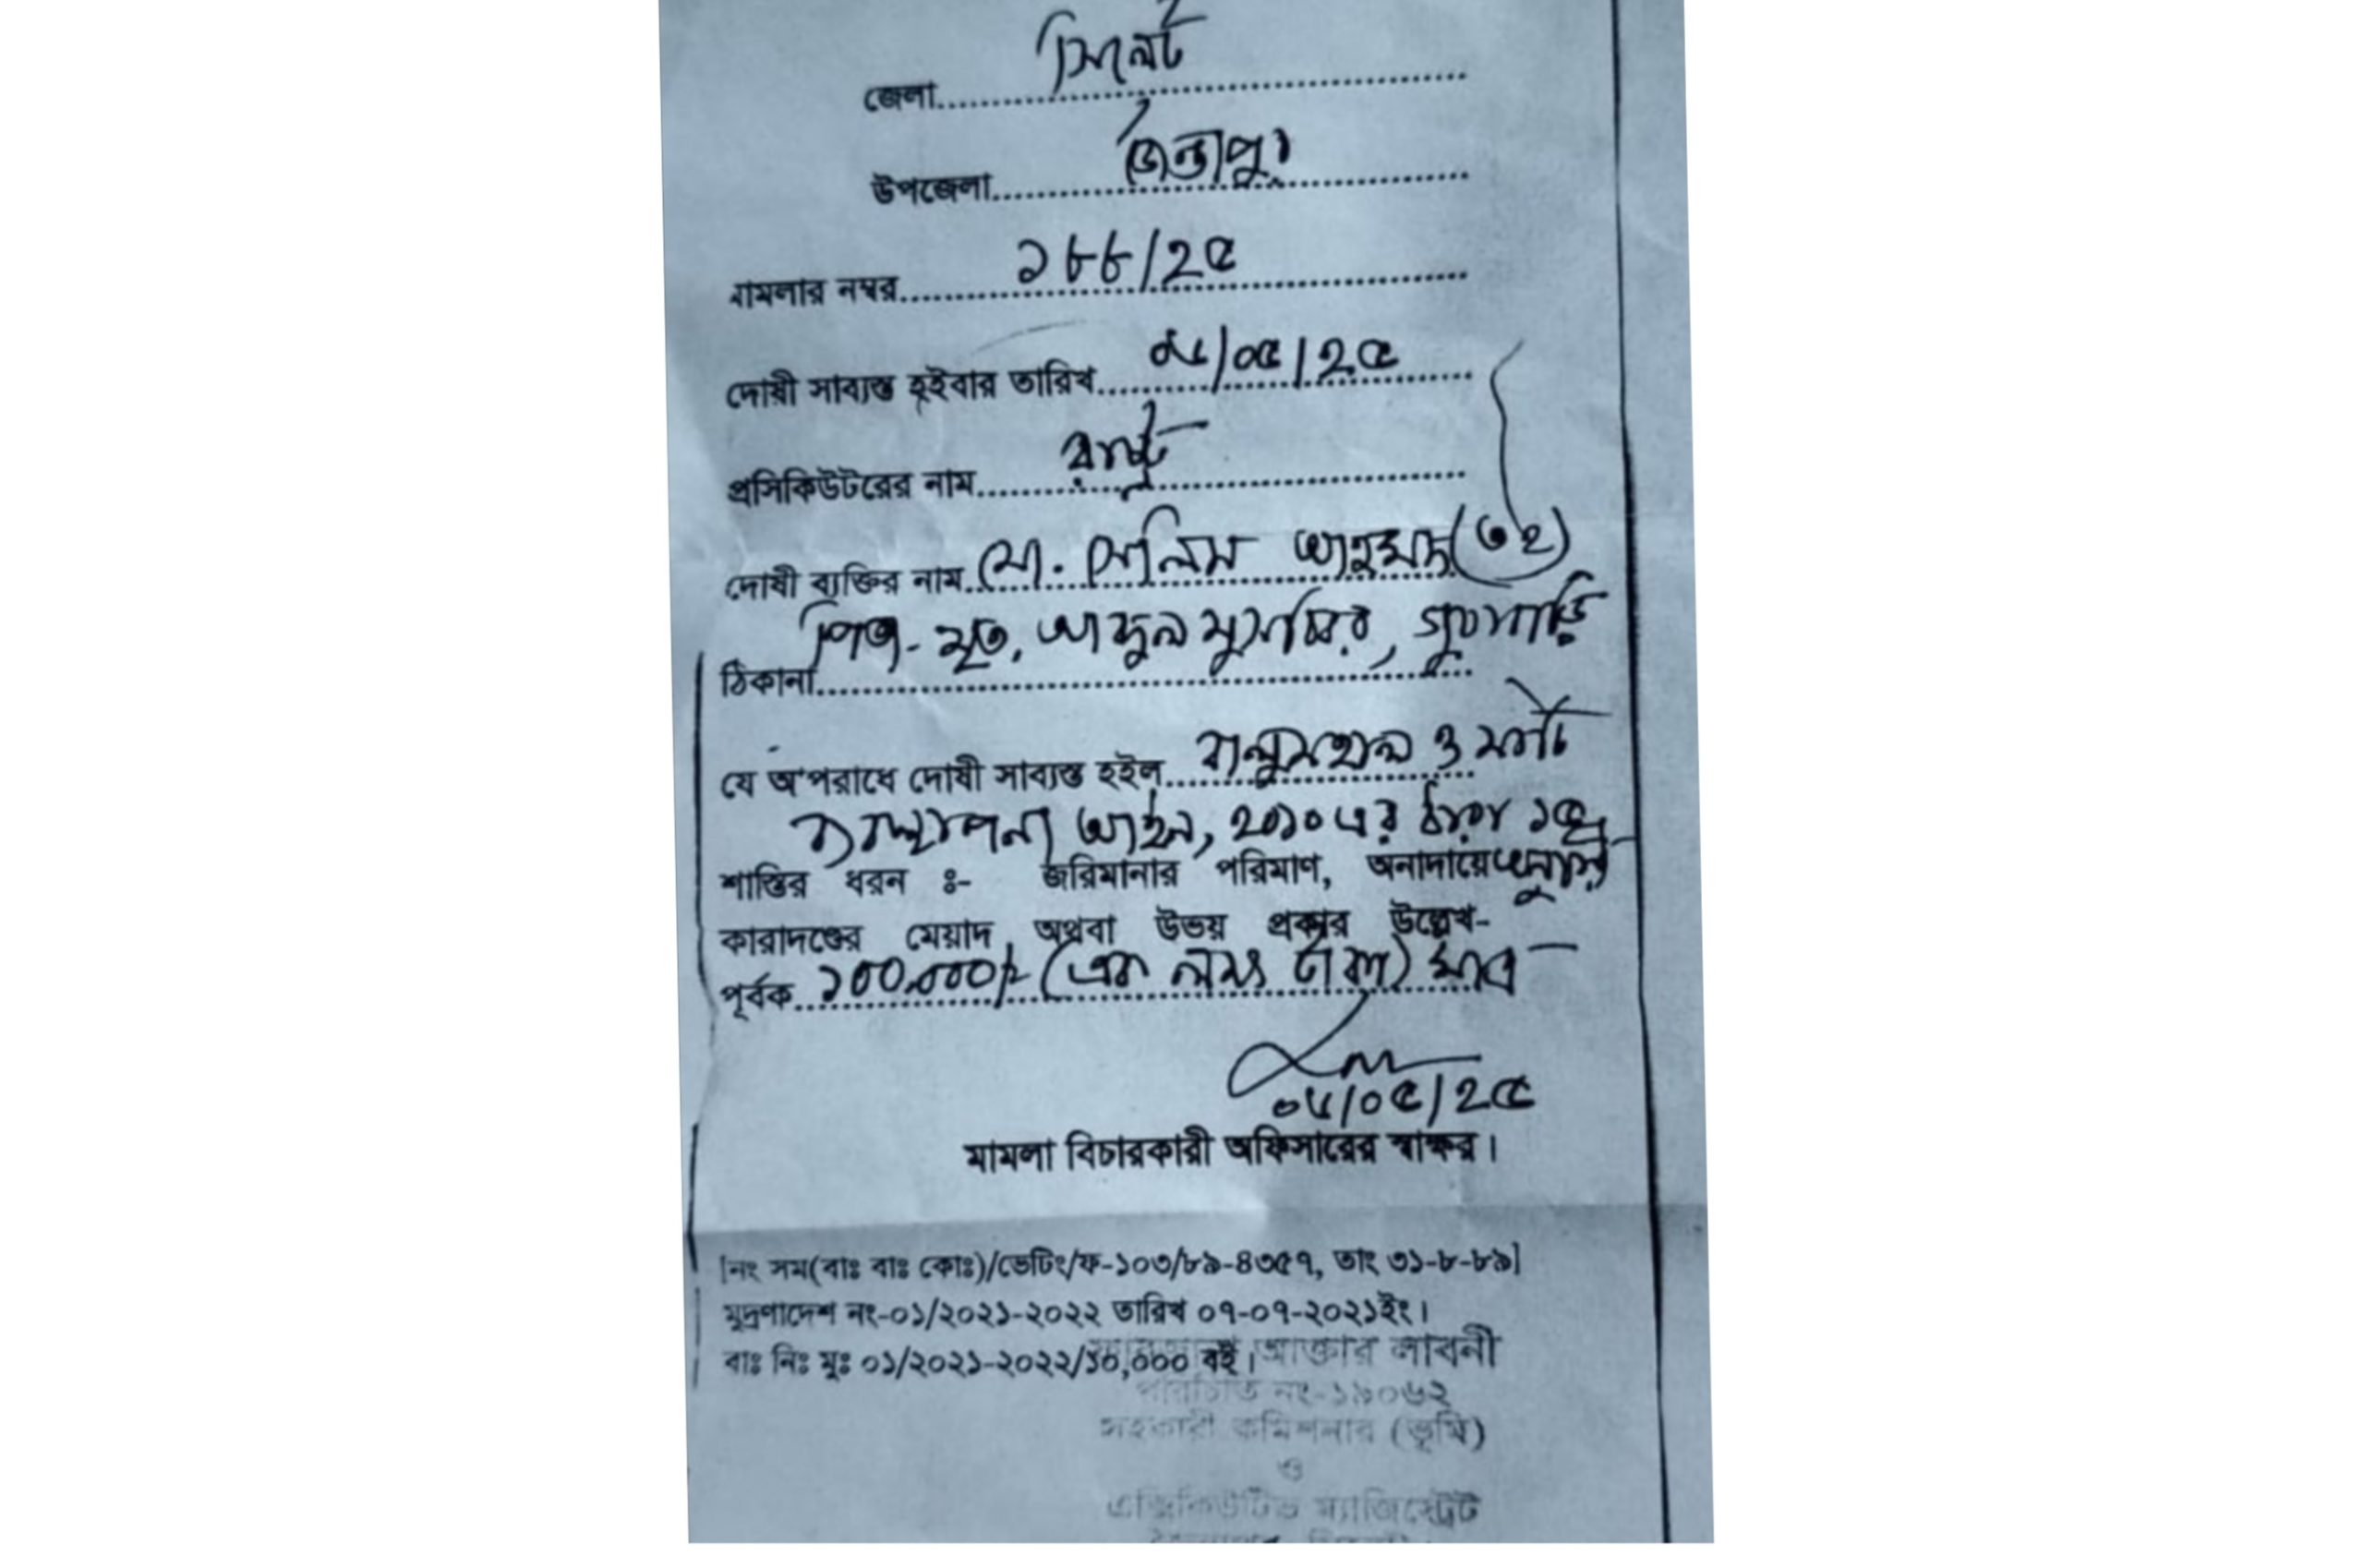 জেলা..... সিলেট
উপজেলা..... জৈন্তাপুর
মামলার নম্বর..... ১৮৮/২৫
দোষী সাব্যস্ত হইবার তারিখ..... ০৮/০৫/২৫
প্রসিকিউটরের নাম..... রাষ্ট্র
দোষী ব্যক্তির নাম..... মো. সেলিম আহমদ (৩২)
পিতা- মৃত. আব্দুল মুসাব্বির,
ঠিকানা.....
যে অপরাধে দোষী সাব্যস্ত হইল..... বালুমহাল ও মাটি
ব্যবস্থাপনা আইন, ২০১০ এর ধারা ১৫
শাস্তির ধরন ঃ- জরিমানার পরিমাণ, অনাদায়ে অনুসারে
কারাদণ্ডের মেয়াদ, অথবা উভয় প্রকার উল্লেখ-
পূর্বক..... ১০০,০০০/- (এক লক্ষ টাকা) মাত্র
০৮/০৫/২৫
মামলা বিচারকারী অফিসারের স্বাক্ষর।
[নং সম(বাঃ বাঃ কোঃ)/ভেটিং/ফ-১০৩/৮৯-৪৩৫৭, তাং ৩১-৮-৮৯]
মুদ্রণাদেশ নং-০১/২০২১-২০২২ তারিখ ০৭-০৭-২০২১ইং।
বাঃ নিঃ মুঃ ০১/২০২১-২০২২/১০,০০০ বই।
আক্তার লাবনী
পরিচিতি নং-১৯০৬২
সহকারী কমিশনার (ভূমি)
ও
এক্সিকিউটিভ ম্যাজিস্ট্রেট